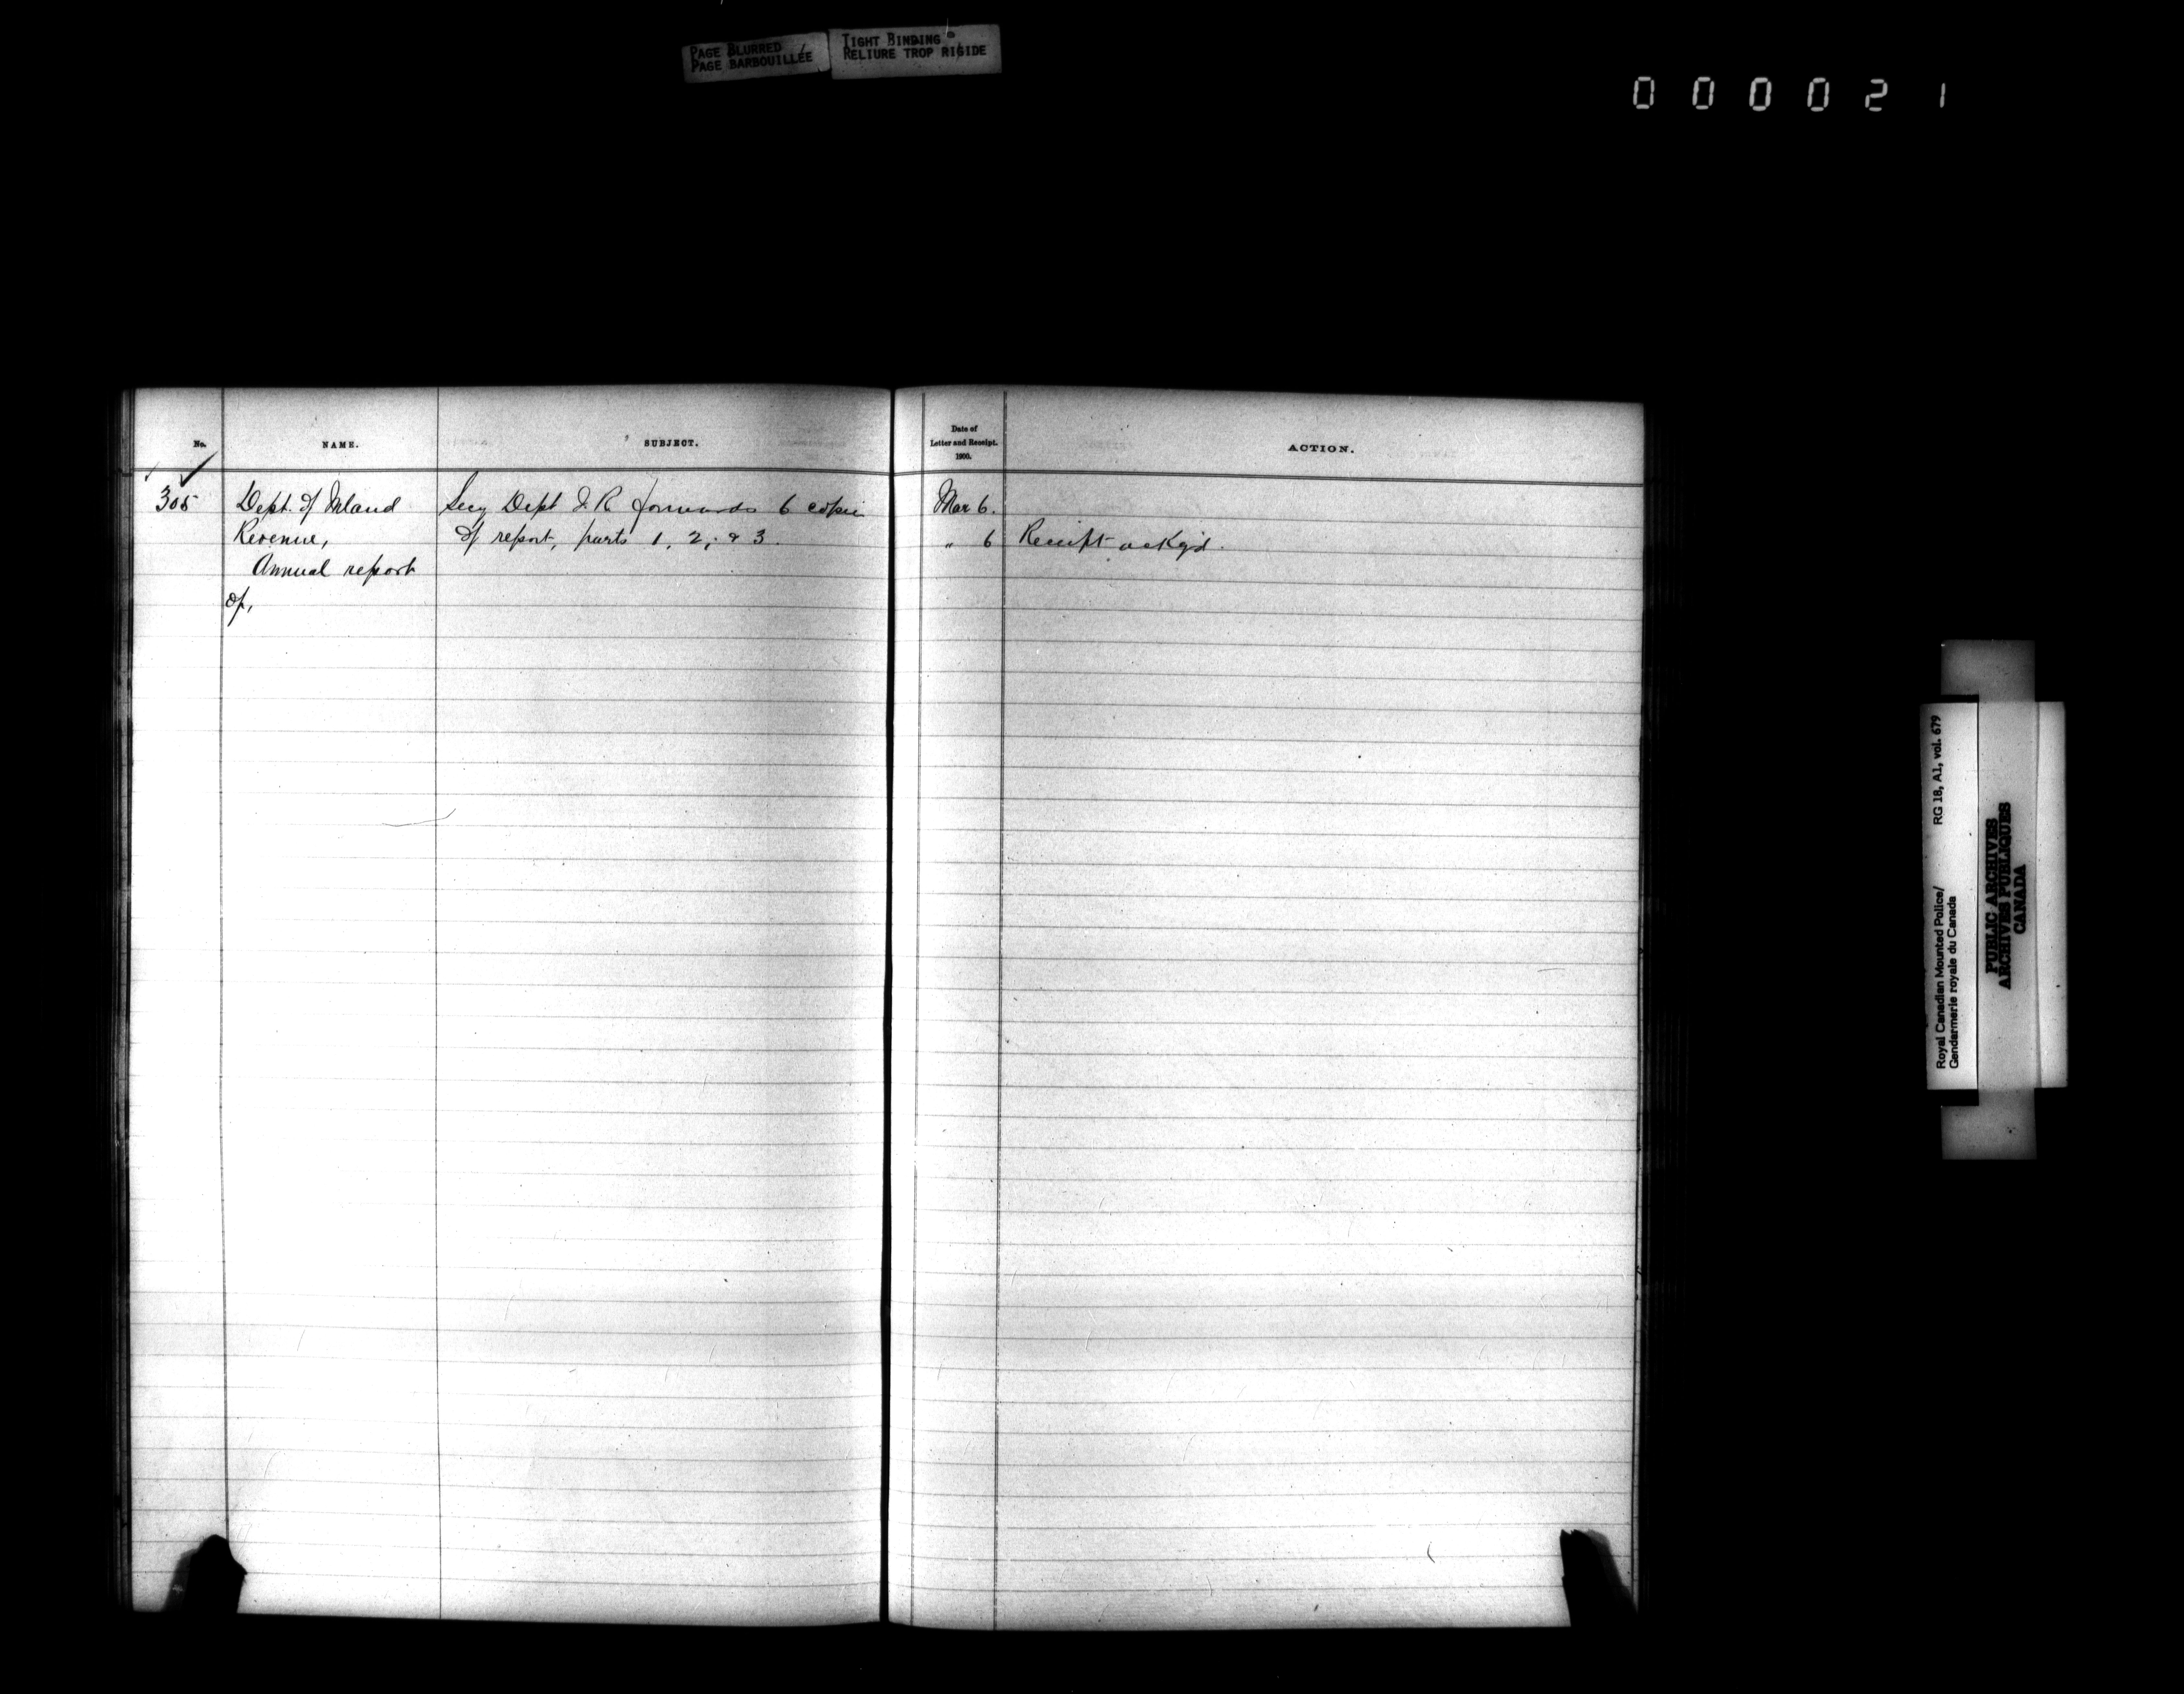 PAGE BLURRED
PAGE BARBOUILLÉE
TIGHT BINDING
RELIURE TROP RIGIDE
000021
No.
NAME.
SUBJECT.
Date of
Letter and Receipt.
1900.
ACTION.
305
Dept. of Inland
Revenue,
Annual report
of,
Secy Dept I. R. forwards 6 copies
of report, parts 1, 2, & 3.
Mar 6.
" 6
Receipt ackgd.
Royal Canadian Mounted Police/
Gendarmerie royale du Canada
RG 18, A1, vol. 679
PUBLIC ARCHIVES
ARCHIVES PUBLIQUES
CANADA